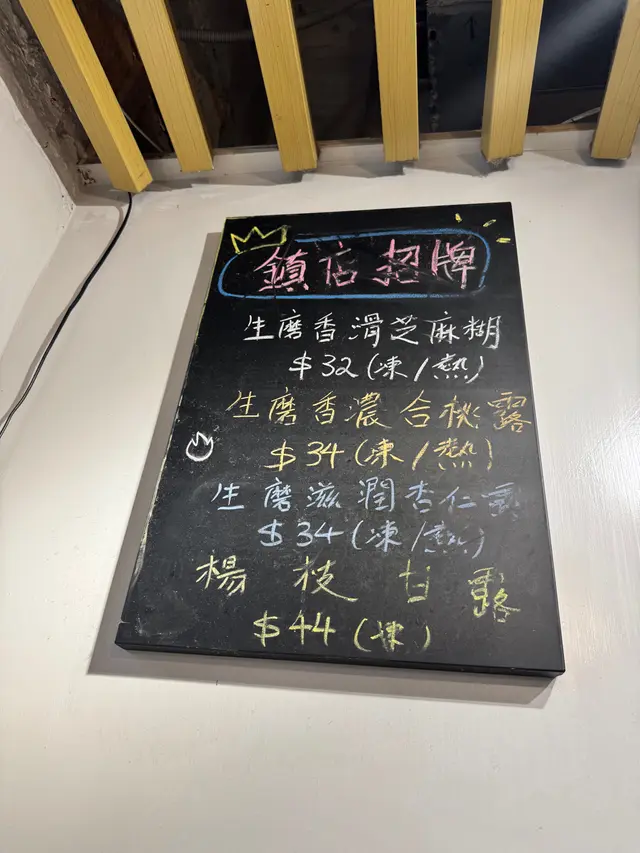 鎮店招牌
生磨香滑芝麻糊
$32(凍/熱)
生磨香濃合桃露
$34(凍/熱)
生磨滋潤杏仁露
$34(凍/熱)
楊枝甘露
$44(凍)